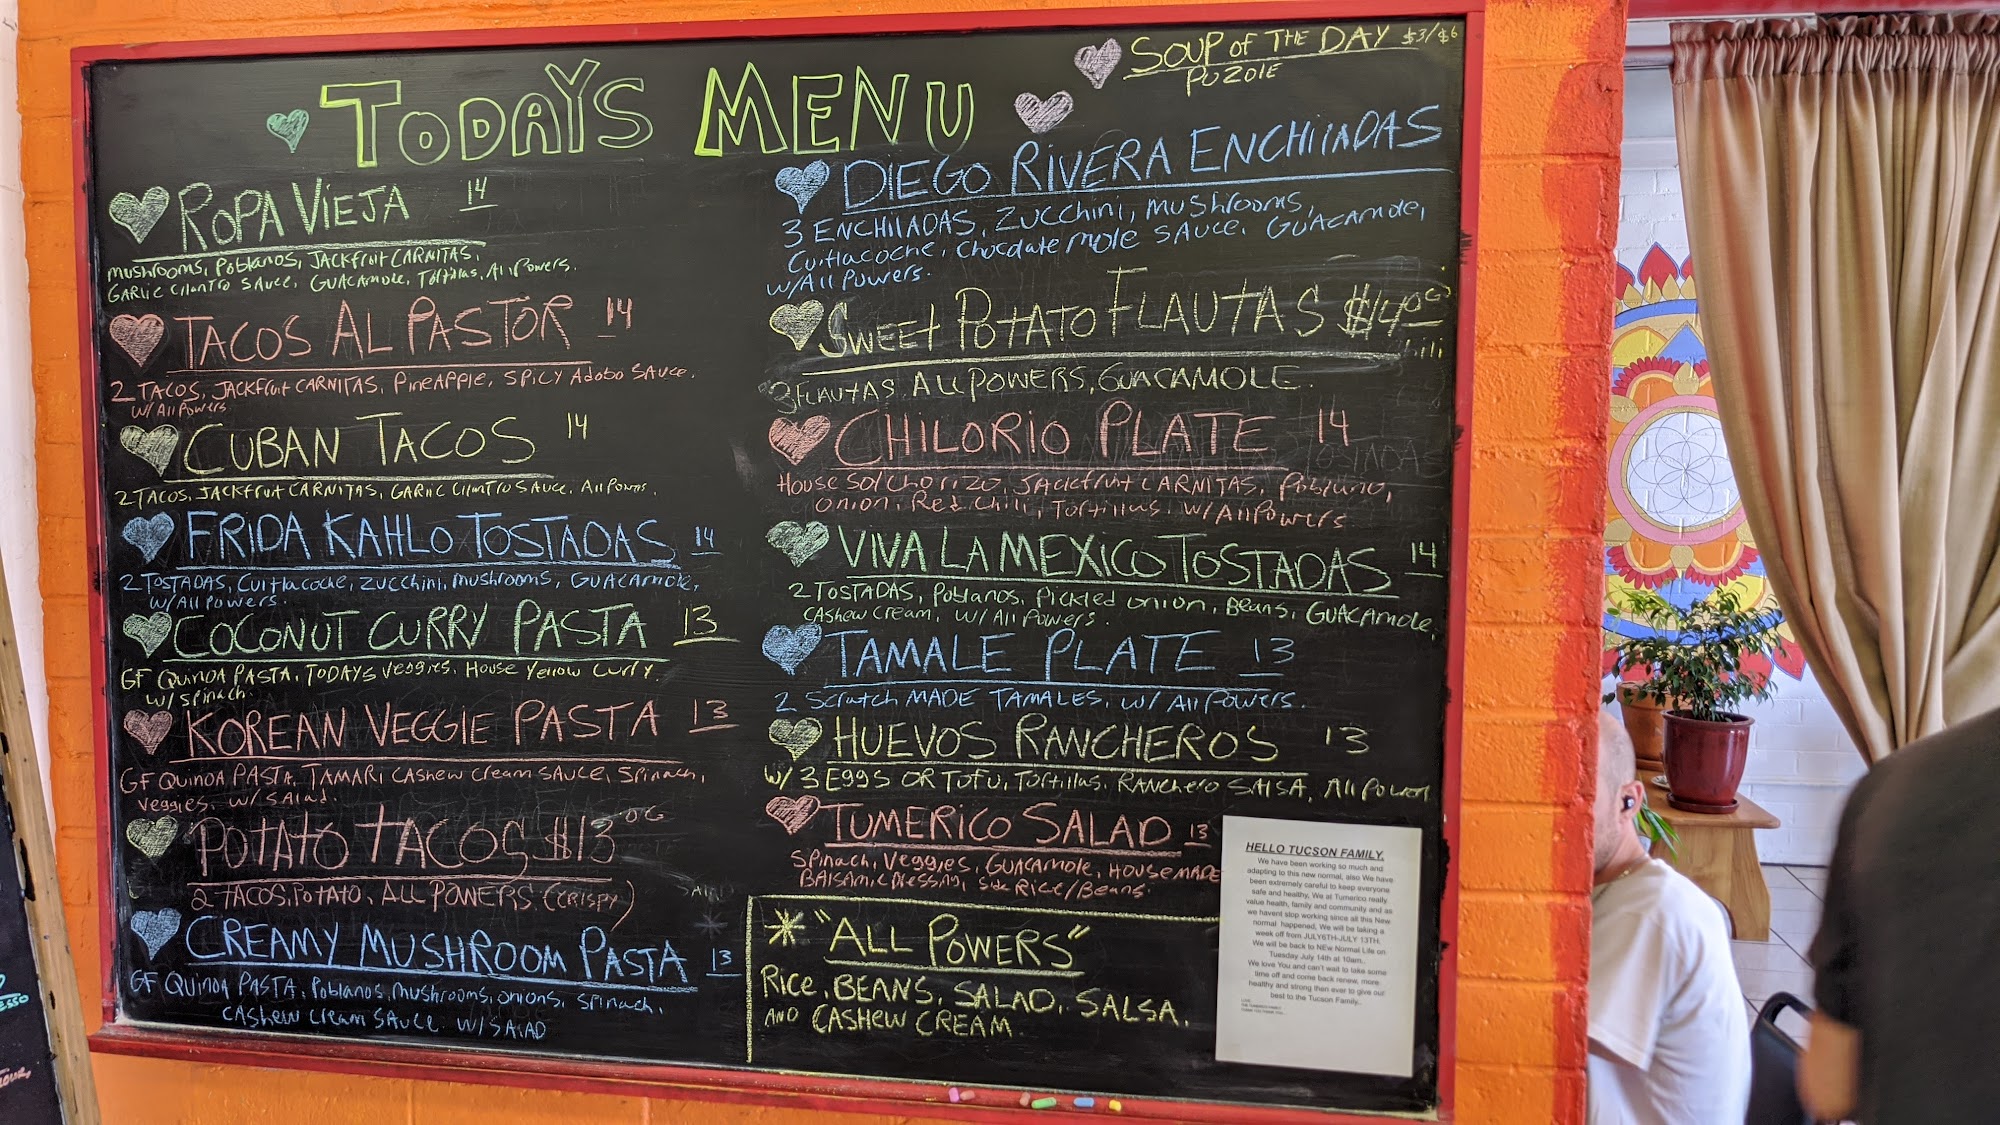 TODAYS MENU
ROPA VIEJA 14
MUSHROOMS, Poblanos, JACKfruit CARNITAS,
GARLIC CILANTRO SAUCE, GUACAMOLE, TORTILLAS, All Powers.
TACOS AL PASTOR 14
2 TACOS, JACKfruit CARNITAS, PINEAPPLE, SPICY ADOBO SAUCE.
W/ All Powers
CUBAN TACOS 14
2 TACOS, JACKfruit CARNITAS, GARLIC CILANTRO SAUCE. All Powers.
FRIDA KAHLO TOSTADAS 14
2 TOSTADAS, Cuitlacoche, zucchini, mushrooms, GUACAMOLE,
W/ All Powers.
COCONUT CURRY PASTA 13
GF QUINOA PASTA, TODAYS Veggies, House Yellow Curry.
W/ Spinach.
KOREAN VEGGIE PASTA 13
GF QUINOA PASTA, TAMARI CASHEW Cream SAUCE, Spinach,
Veggies, W/ SALAD.
POTATO TACOS $13.00
2 TACOS, POTATO, ALL POWERS (CRISPY)
CREAMY MUSHROOM PASTA 13
GF QUINOA PASTA, Poblanos, mushrooms, onions, spinach,
CASHEW Cream SAUCE W/ SALAD
SOUP OF THE DAY $3/$6
POZOLE
DIEGO RIVERA ENCHILADAS
3 ENCHILADAS, Zucchini, mushrooms,
Cuitlacoche, Chocolate mole SAUCE, GUACAMOLE,
W/ All Powers.
SWEET POTATO FLAUTAS $14.00
3 FLAUTAS, ALL POWERS, GUACAMOLE.
CHILORIO PLATE 14
House Soy Chorizo, JACKfruit CARNITAS, Poblano,
Onion, Red Chili, Tortillas, W/ All Powers
VIVA LA MEXICO TOSTADAS 14
2 TOSTADAS, Poblanos, Pickled onion, Beans, GUACAMOLE,
CASHEW Cream, W/ All Powers.
TAMALE PLATE 13
2 Scratch MADE TAMALES, W/ All Powers.
HUEVOS RANCHEROS 13
W/ 3 EGGS OR TOFU, Tortillas, RANCHERO SALSA, All Power
TUMERICO SALAD 13
Spinach, Veggies, GUACAMOLE, HOUSE MADE
BALSAMIC DRESSING, Side Rice/Beans.
* "ALL POWERS"
Rice, BEANS, SALAD, SALSA,
AND CASHEW CREAM.
HELLO TUCSON FAMILY.
We have been working so much and
adapting to this new normal, also We have
been extremely careful to keep everyone
safe and healthy, We at Tumerico really
value health, family and community and as
we havent stop working since all this New
normal happened, We will be taking a
week off from JULY6TH-JULY 13TH.
We will be back to NEw Normal Life on
Tuesday July 14th at 10am.
We love You and can't wait to take some
time off and come back renew, more
healthy and strong then ever to give our
best to the Tucson Family..